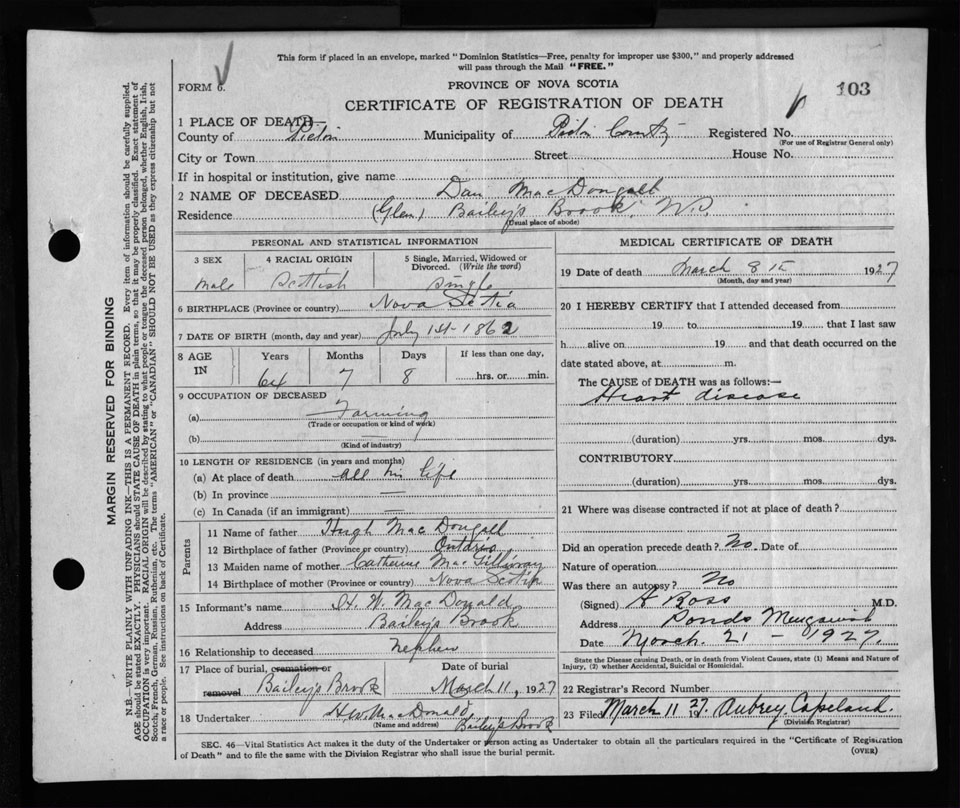 This form if placed in an envelope, marked "Dominion Statistics—Free, penalty for improper use $300," and properly addressed
will pass through the Mail "FREE."
FORM 6.
PROVINCE OF NOVA SCOTIA
103
CERTIFICATE OF REGISTRATION OF DEATH
1 PLACE OF DEATH—
County of Pictou Municipality of Pictou County Registered No.
(For use of Registrar General only)
City or Town Street House No.
If in hospital or institution, give name
2 NAME OF DECEASED Dan MacDougall
Residence (Glen) Bailey's Brook, N.S.
(Usual place of abode)
PERSONAL AND STATISTICAL INFORMATION
3 SEX
Male
4 RACIAL ORIGIN
Scottish
5 Single, Married, Widowed or
Divorced. (Write the word)
Single
6 BIRTHPLACE (Province or country) Nova Scotia
7 DATE OF BIRTH (month, day and year) July 1st - 1862
8 AGE
IN
Years Months Days If less than one day,
64 7 8 hrs. or min.
9 OCCUPATION OF DECEASED
(a) Farming
(Trade or occupation or kind of work)
(b) —
(Kind of industry)
10 LENGTH OF RESIDENCE (in years and months)
(a) At place of death all his life
(b) In province —
(c) In Canada (if an immigrant) —
Parents
11 Name of father Hugh MacDougall
12 Birthplace of father (Province or country) Ontario
13 Maiden name of mother Catherine MacGillivray
14 Birthplace of mother (Province or country) Nova Scotia
15 Informant's name H. W. MacDonald
Address Bailey's Brook
16 Relationship to deceased Nephew
17 Place of burial, cremation or
removal Bailey's Brook
Date of burial
March 11, 1927
18 Undertaker H.W. MacDonald
(Name and address) Bailey's Brook
MEDICAL CERTIFICATE OF DEATH
19 Date of death March 8th 1927
(Month, day and year)
20 I HEREBY CERTIFY that I attended deceased from
19 to 19 that I last saw
h alive on 19 and that death occurred on the
date stated above, at m.
The CAUSE of DEATH was as follows:—
Heart disease
(duration) yrs. mos. dys.
CONTRIBUTORY.
(duration) yrs. mos. dys.
21 Where was disease contracted if not at place of death?
Did an operation precede death? No. Date of
Nature of operation
Was there an autopsy? No
(Signed) A Ross M.D.
Address Ponds
Date March. 21 - 1927.
State the Disease causing Death, or in death from Violent Causes, state (1) Means and Nature of
Injury, (2) whether Accidental, Suicidal or Homicidal.
22 Registrar's Record Number
23 Filed March 11 1927. Aubrey Copeland.
(Division Registrar)
SEC. 46—Vital Statistics Act makes it the duty of the Undertaker or person acting as Undertaker to obtain all the particulars required in the "Certificate of Registration
of Death" and to file the same with the Division Registrar who shall issue the burial permit.
(OVER)
MARGIN RESERVED FOR BINDING
N.B.—WRITE PLAINLY WITH UNFADING INK—THIS IS A PERMANENT RECORD. Every item of information should be carefully supplied.
AGE should be stated EXACTLY. PHYSICIANS should STATE CAUSE OF DEATH in plain terms, so that it may be properly classified. Exact statement of
OCCUPATION is very important. RACIAL ORIGIN will be described by stating to what people or tongue the deceased person belonged, whether English, Irish,
Scotch, French, German, Russian, Ruthenian, etc. The terms "AMERICAN" or "CANADIAN" SHOULD NOT BE USED as they express citizenship but not
a race or people. See instructions on back of Certificate.